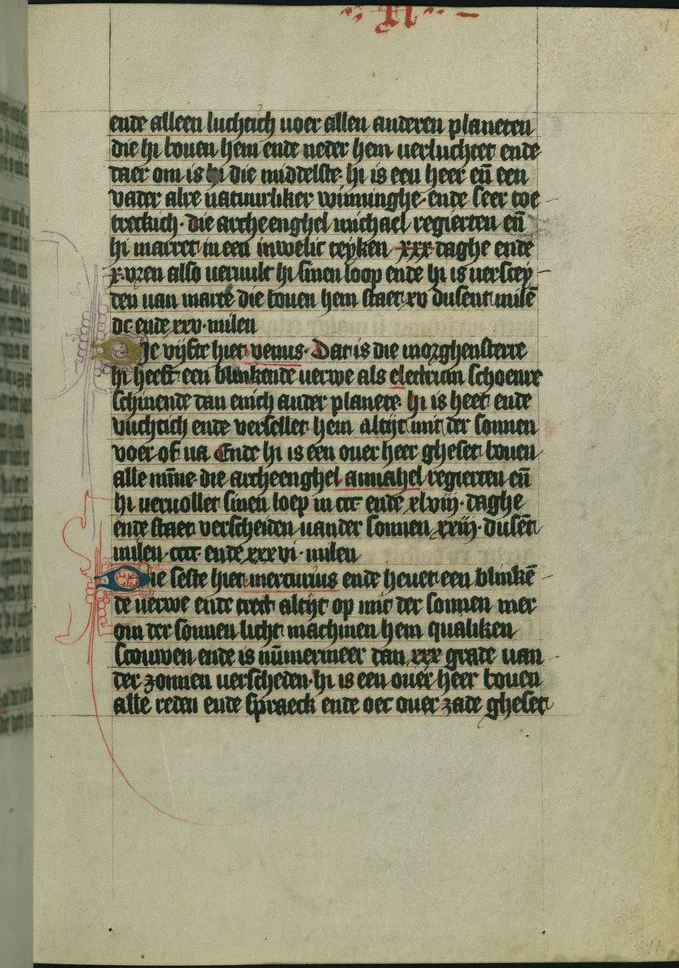 ende alleen luchtich voer allen anderen planeten
die hi boven hem ende neder hem verluchtet ende
daer om is hi die middelste· hi is een heer eñ een
vader alre natuurliker winninghe· ende seer toe
treckich· die archeenghel michael regierten eñ
hi marret in een inwelic teyken xxx daghe ende
x· uren also vervult hi sinen loop ende hi is verscey-
den van marte die boven hem staet xv dusent milē
dc ende xxv· milen
Die vijfte hiet venus· Dat is die morghensterre
hi heeft een blinkende verwe als electrum schoenre
schinende dan enich ander planete· hi is heet ende
vuchtich ende versellet hem altijt mit der sonnen
voer of na Ende hi is een over heer gheset boven
alle mīne die archeenghel annahel regierten eñ
hi vervollet sinen loep in ccc ende xlviij· daghe
ende staet verscheiden van der sonnen xxiij· dusēt
milen· cccc· ende xxxvi· milen
Die seste hiet mercurius ende hevet een blinkē
de verwe ende treet altijt op mit der sonnen mer
om der sonnen licht machmen hem qualiken
scouwen ende is nūmermeer dan xxx grade van
der zonnen verscheden· hi is een over heer boven
alle reden ende spraeck ende oec over zade gheset